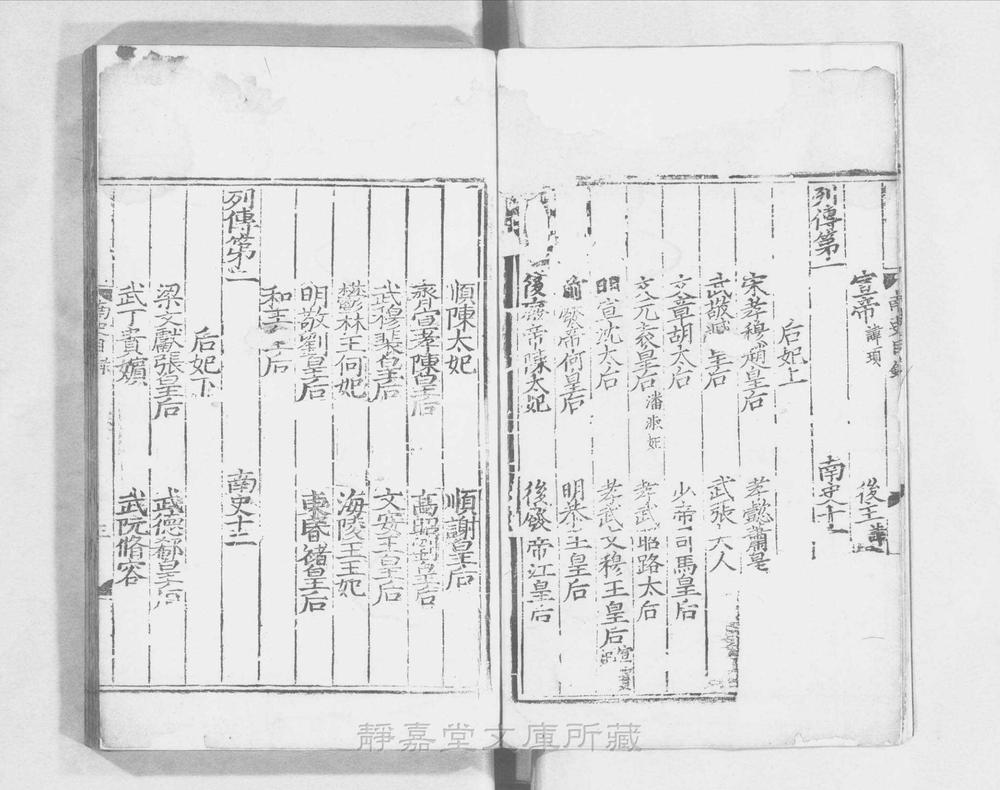 宣帝 諱頊 後主 諱
列傳第一 南史十一
后妃上
宋孝穆趙皇后 孝懿蕭皇
武敬臧皇后 武張夫人
文章胡太后 少帝司馬皇后
文元袁皇后 潘淑妃 孝武昭路太后
明宣沈太后 孝武文穆王皇后 宣
前廢帝何皇后 明恭王皇后
後廢帝陳太妃 後廢帝江皇后
順陳太妃 順謝皇后
齊宣孝陳皇后 高昭劉皇后
武穆裴皇后 文安王皇后
鬱林王何妃 海陵王王妃
明敬劉皇后 東昏褚皇后
和王皇后
列傳第二 南史十二
后妃下
梁文獻張皇后 武德郗皇后
武丁貴嬪 武阮脩容
南史目錄 三
靜嘉堂文庫所藏